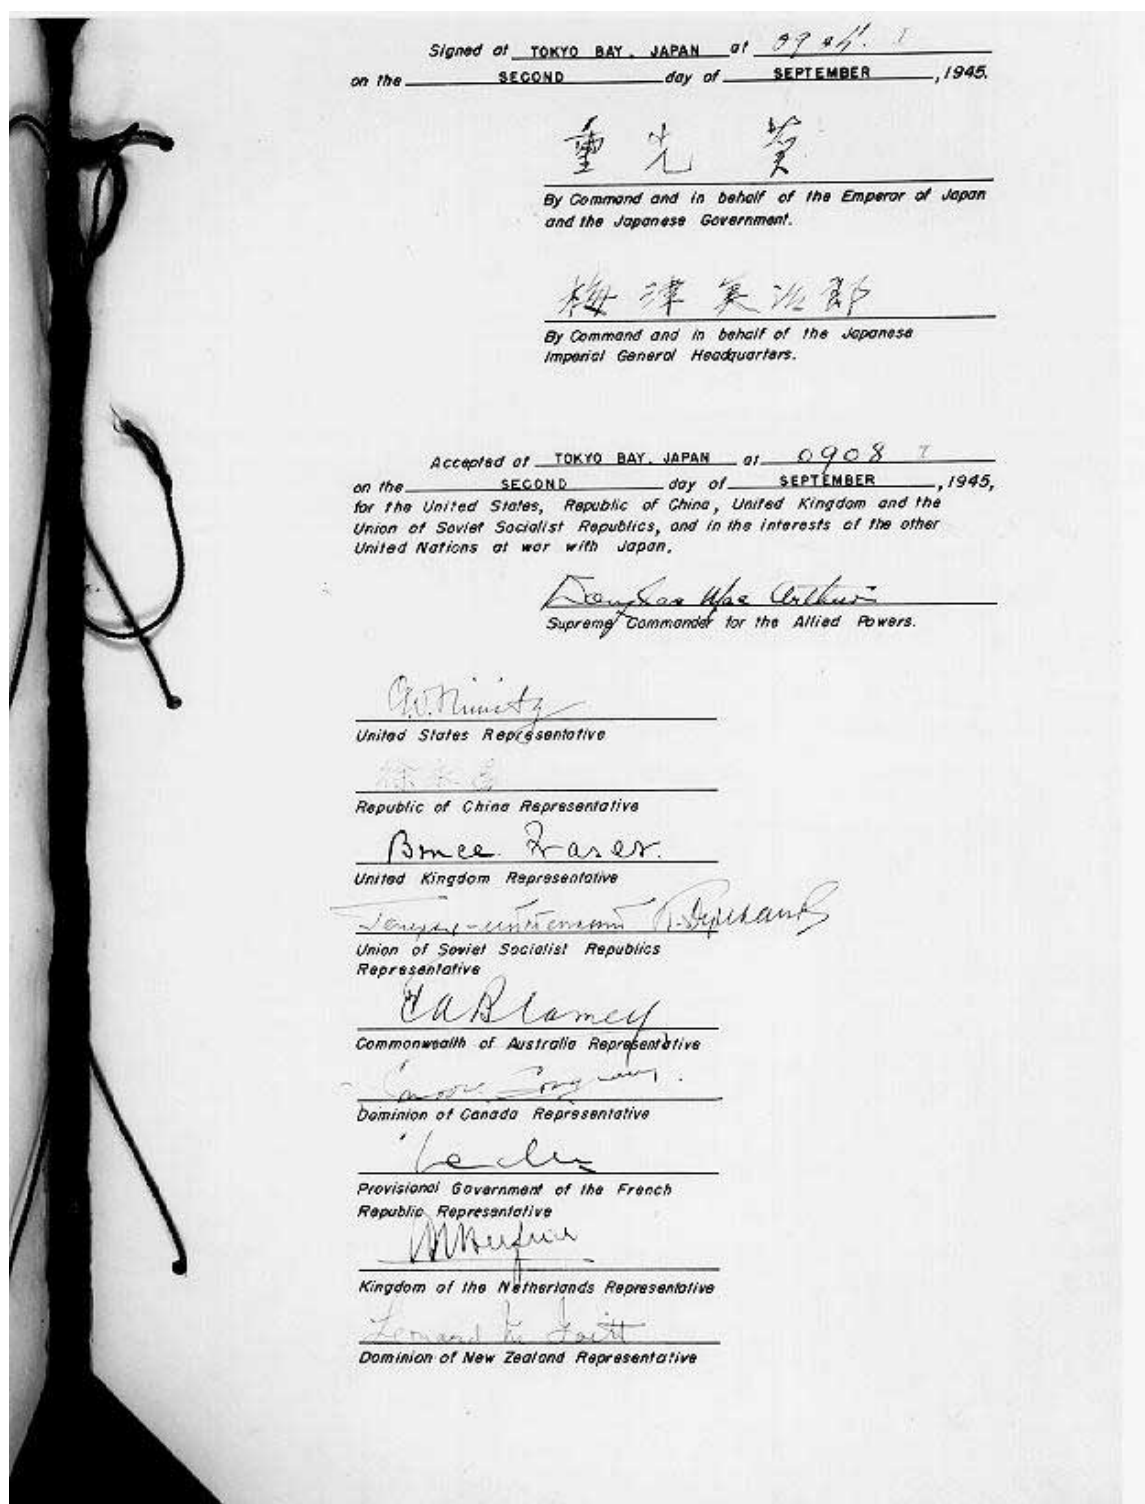 Signed at TOKYO BAY, JAPAN at 0904 I
on the SECOND day of SEPTEMBER, 1945.
重光 葵
By Command and in behalf of the Emperor of Japan
and the Japanese Government.
梅津美治郎
By Command and in behalf of the Japanese
Imperial General Headquarters.
Accepted at TOKYO BAY, JAPAN at 0908 I
on the SECOND day of SEPTEMBER, 1945,
for the United States, Republic of China, United Kingdom and the
Union of Soviet Socialist Republics, and in the interests of the other
United Nations at war with Japan.
Douglas MacArthur
Supreme Commander for the Allied Powers.
C.W. Nimitz
United States Representative
徐永昌
Republic of China Representative
Bruce Fraser.
United Kingdom Representative
Union of Soviet Socialist Republics
Representative
T A Blamey
Commonwealth of Australia Representative
Dominion of Canada Representative
Provisional Government of the French
Republic Representative
Kingdom of the Netherlands Representative
Leonard M Isitt
Dominion of New Zealand Representative